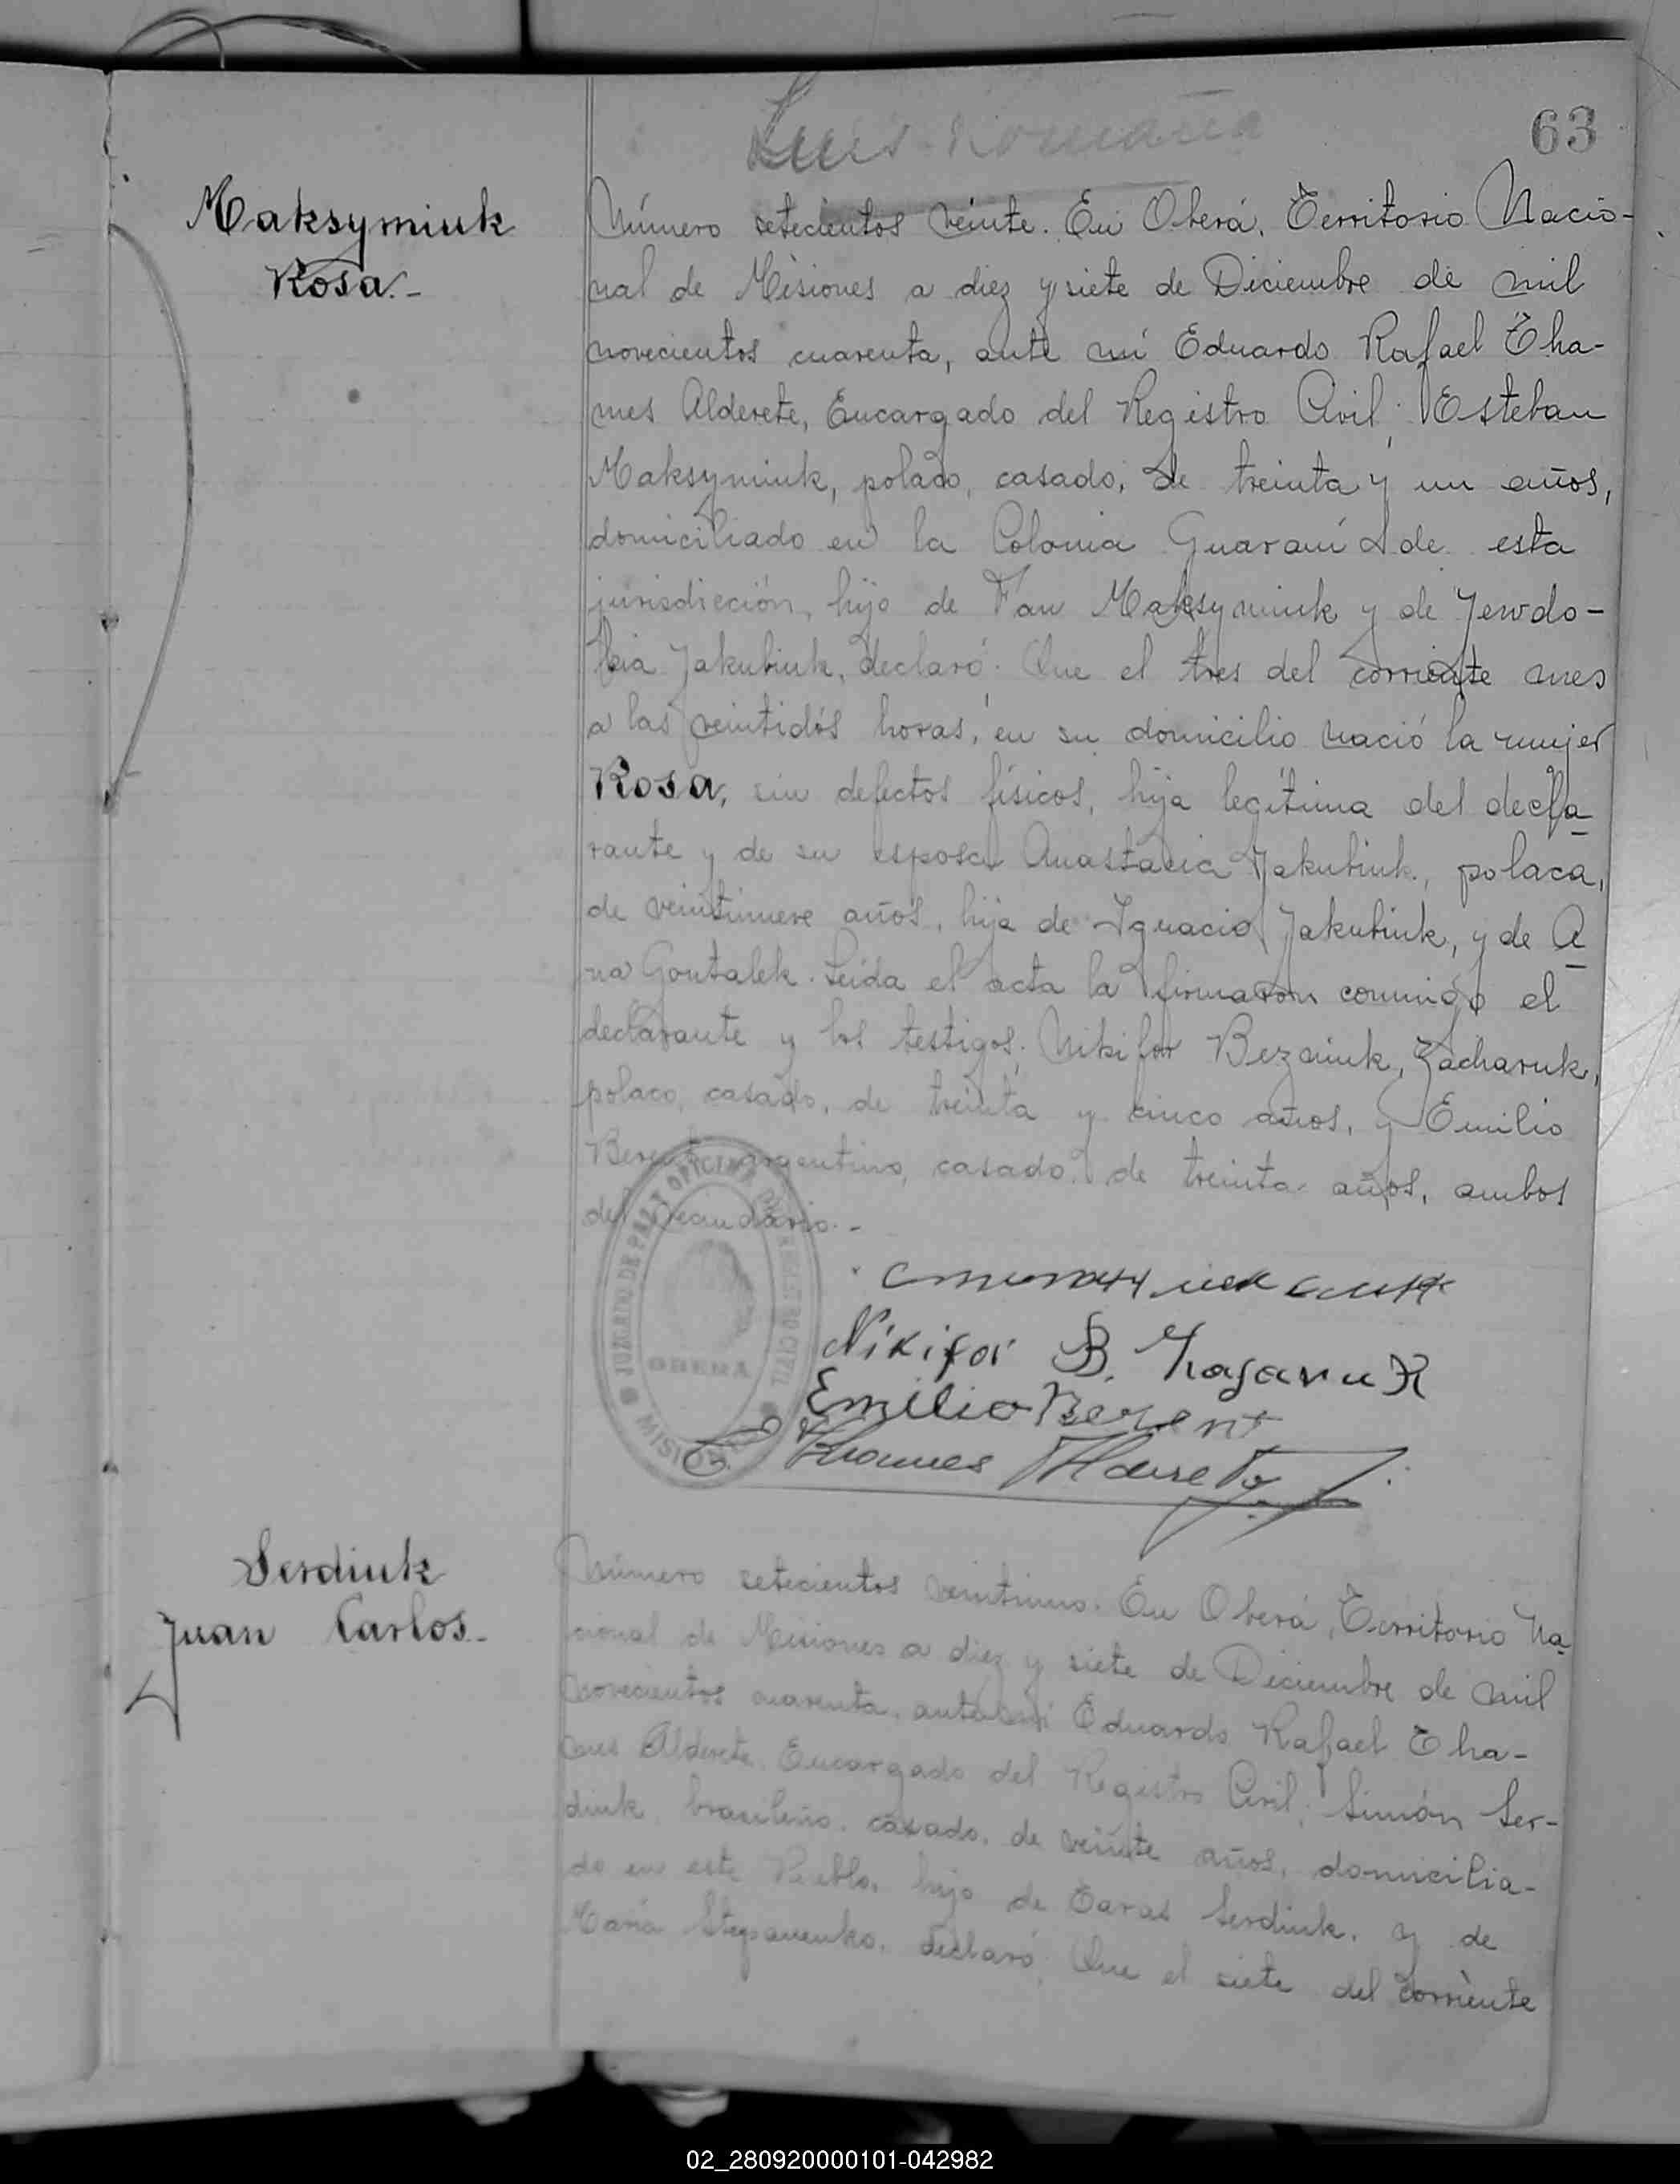 63
Maksymiuk
Rosa.-
Número setecientos veinte. En Oberá, Territorio Nacio-
nal de Misiones a diez y siete de Diciembre de mil
novecientos cuarenta, ante mi Eduardo Rafael Tha-
mes Alderete, Encargado del Registro Civil; Esteban
Maksymiuk, polaco, casado, de treinta y un años,
domiciliado en la Colonia Guaraní de esta
jurisdicción, hijo de Maksymiuk y de Jewdo-
Jakubiuk, declaró: Que el tres del corriente mes
a las veintidós horas, en su domicilio nació la mujer
Rosa, sin defectos físicos, hija legítima del decla
rante y de su esposa Anastacia Jakubiuk, polaca,
de veintinueve años, hija de Ignacio Jakubiuk, y de A
na Gontalek. Leida el acta la firmaron conmigo el
declarante y los testigos; Nikifor Bezniuk, Zacharuk,
polaco, casado, de treinta y cinco años, y Emilio
Berent argentino, casado, de treinta años, ambos
del vecindario.-
JUZGADO DE PAZ Y OFICINA DEL REGISTRO CIVIL
OBERA
MISIONES
Nikifor B.
Emilio Berent
Thames Alderete
Serdiuk
Juan Carlos.-
Número setecientos veintiuno. En Oberá, Territorio Na
cional de Misiones a diez y siete de Diciembre de mil
novecientos cuarenta, ante mi Eduardo Rafael Tha-
mes Alderete, Encargado del Registro Civil; Simón Ser-
diuk, brasileño, casado, de veinte años, domicilia-
do en este Pueblo, hijo de Taras Serdiuk, y de
María Stepanenko, declaró: Que el siete del corriente
02_280920000101-042982